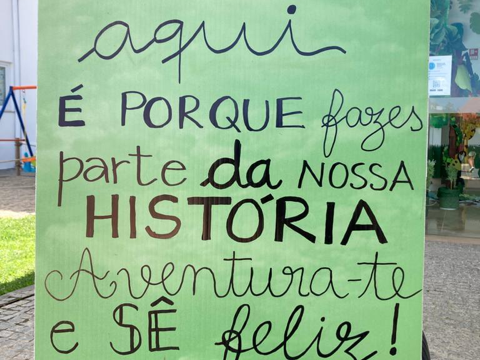 aqui
É PORQUE fazes
parte da NOSSA
HISTÓRIA
Aventura-te
e SÊ feliz!